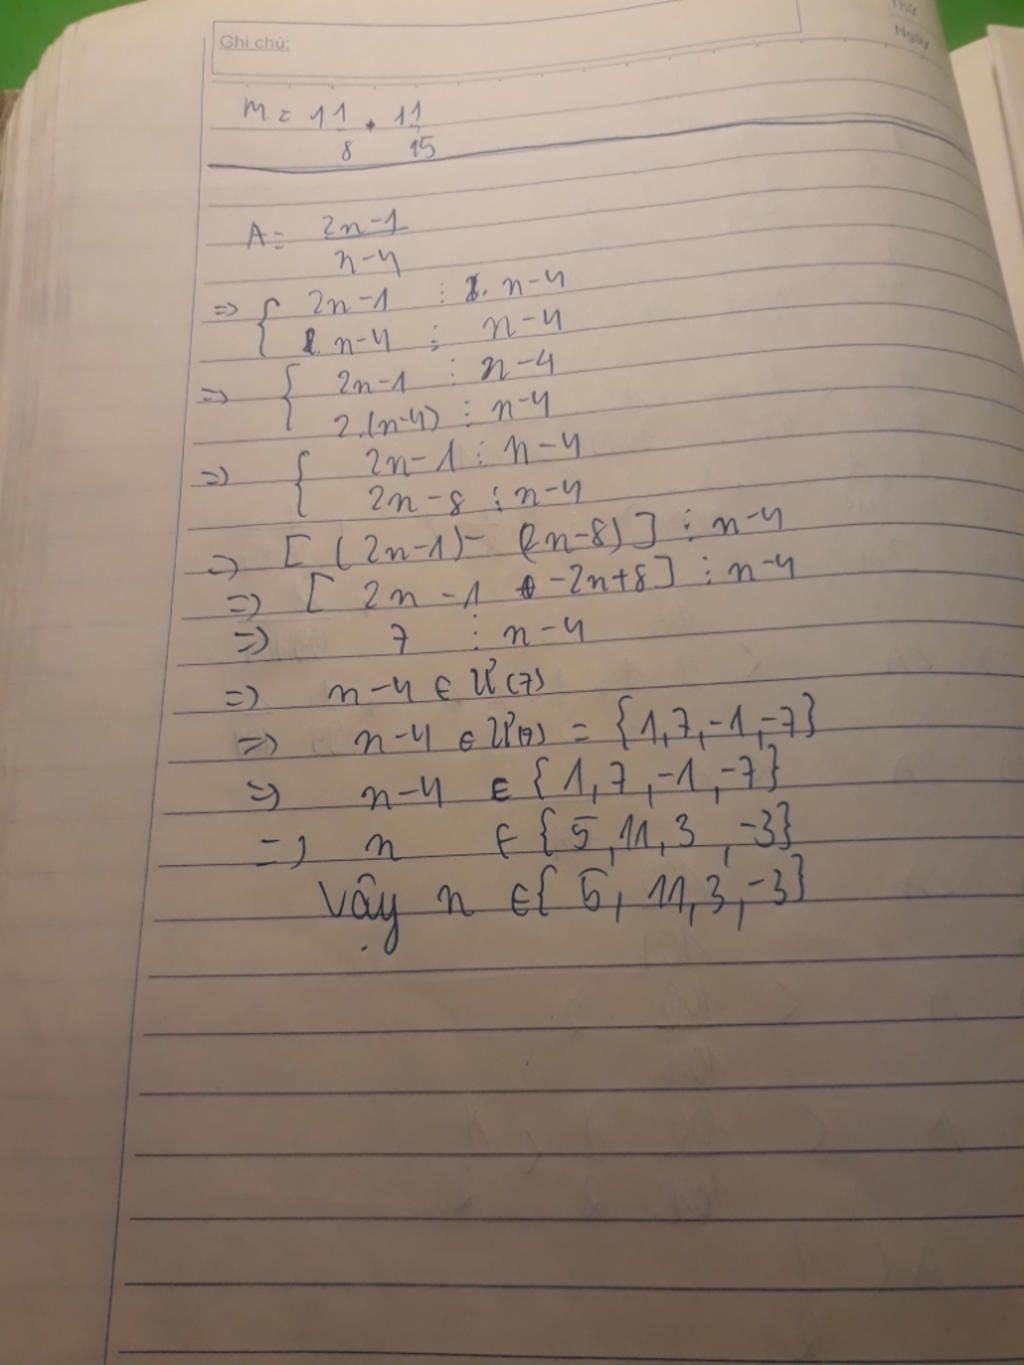 Thứ
Ngày
Ghi chú:
M = 11/8 . 11/15
A = 2n-1/n-4
=> { 2n-1 ⋮ n-4
n-4 ⋮ n-4
=> { 2n-1 ⋮ n-4
2.(n-4) ⋮ n-4
=> { 2n-1 ⋮ n-4
2n-8 ⋮ n-4
=> [ (2n-1) - (2n-8) ] ⋮ n-4
=> [ 2n-1 -2n+8 ] ⋮ n-4
=> 7 ⋮ n-4
=> n-4 ∈ Ư(7)
=> n-4 ∈ Ư(7) = {1,7,-1,-7}
=> n-4 ∈ {1,7,-1,-7}
=> n ∈ {5,11,3,-3}
Vậy n ∈ {5,11,3,-3}